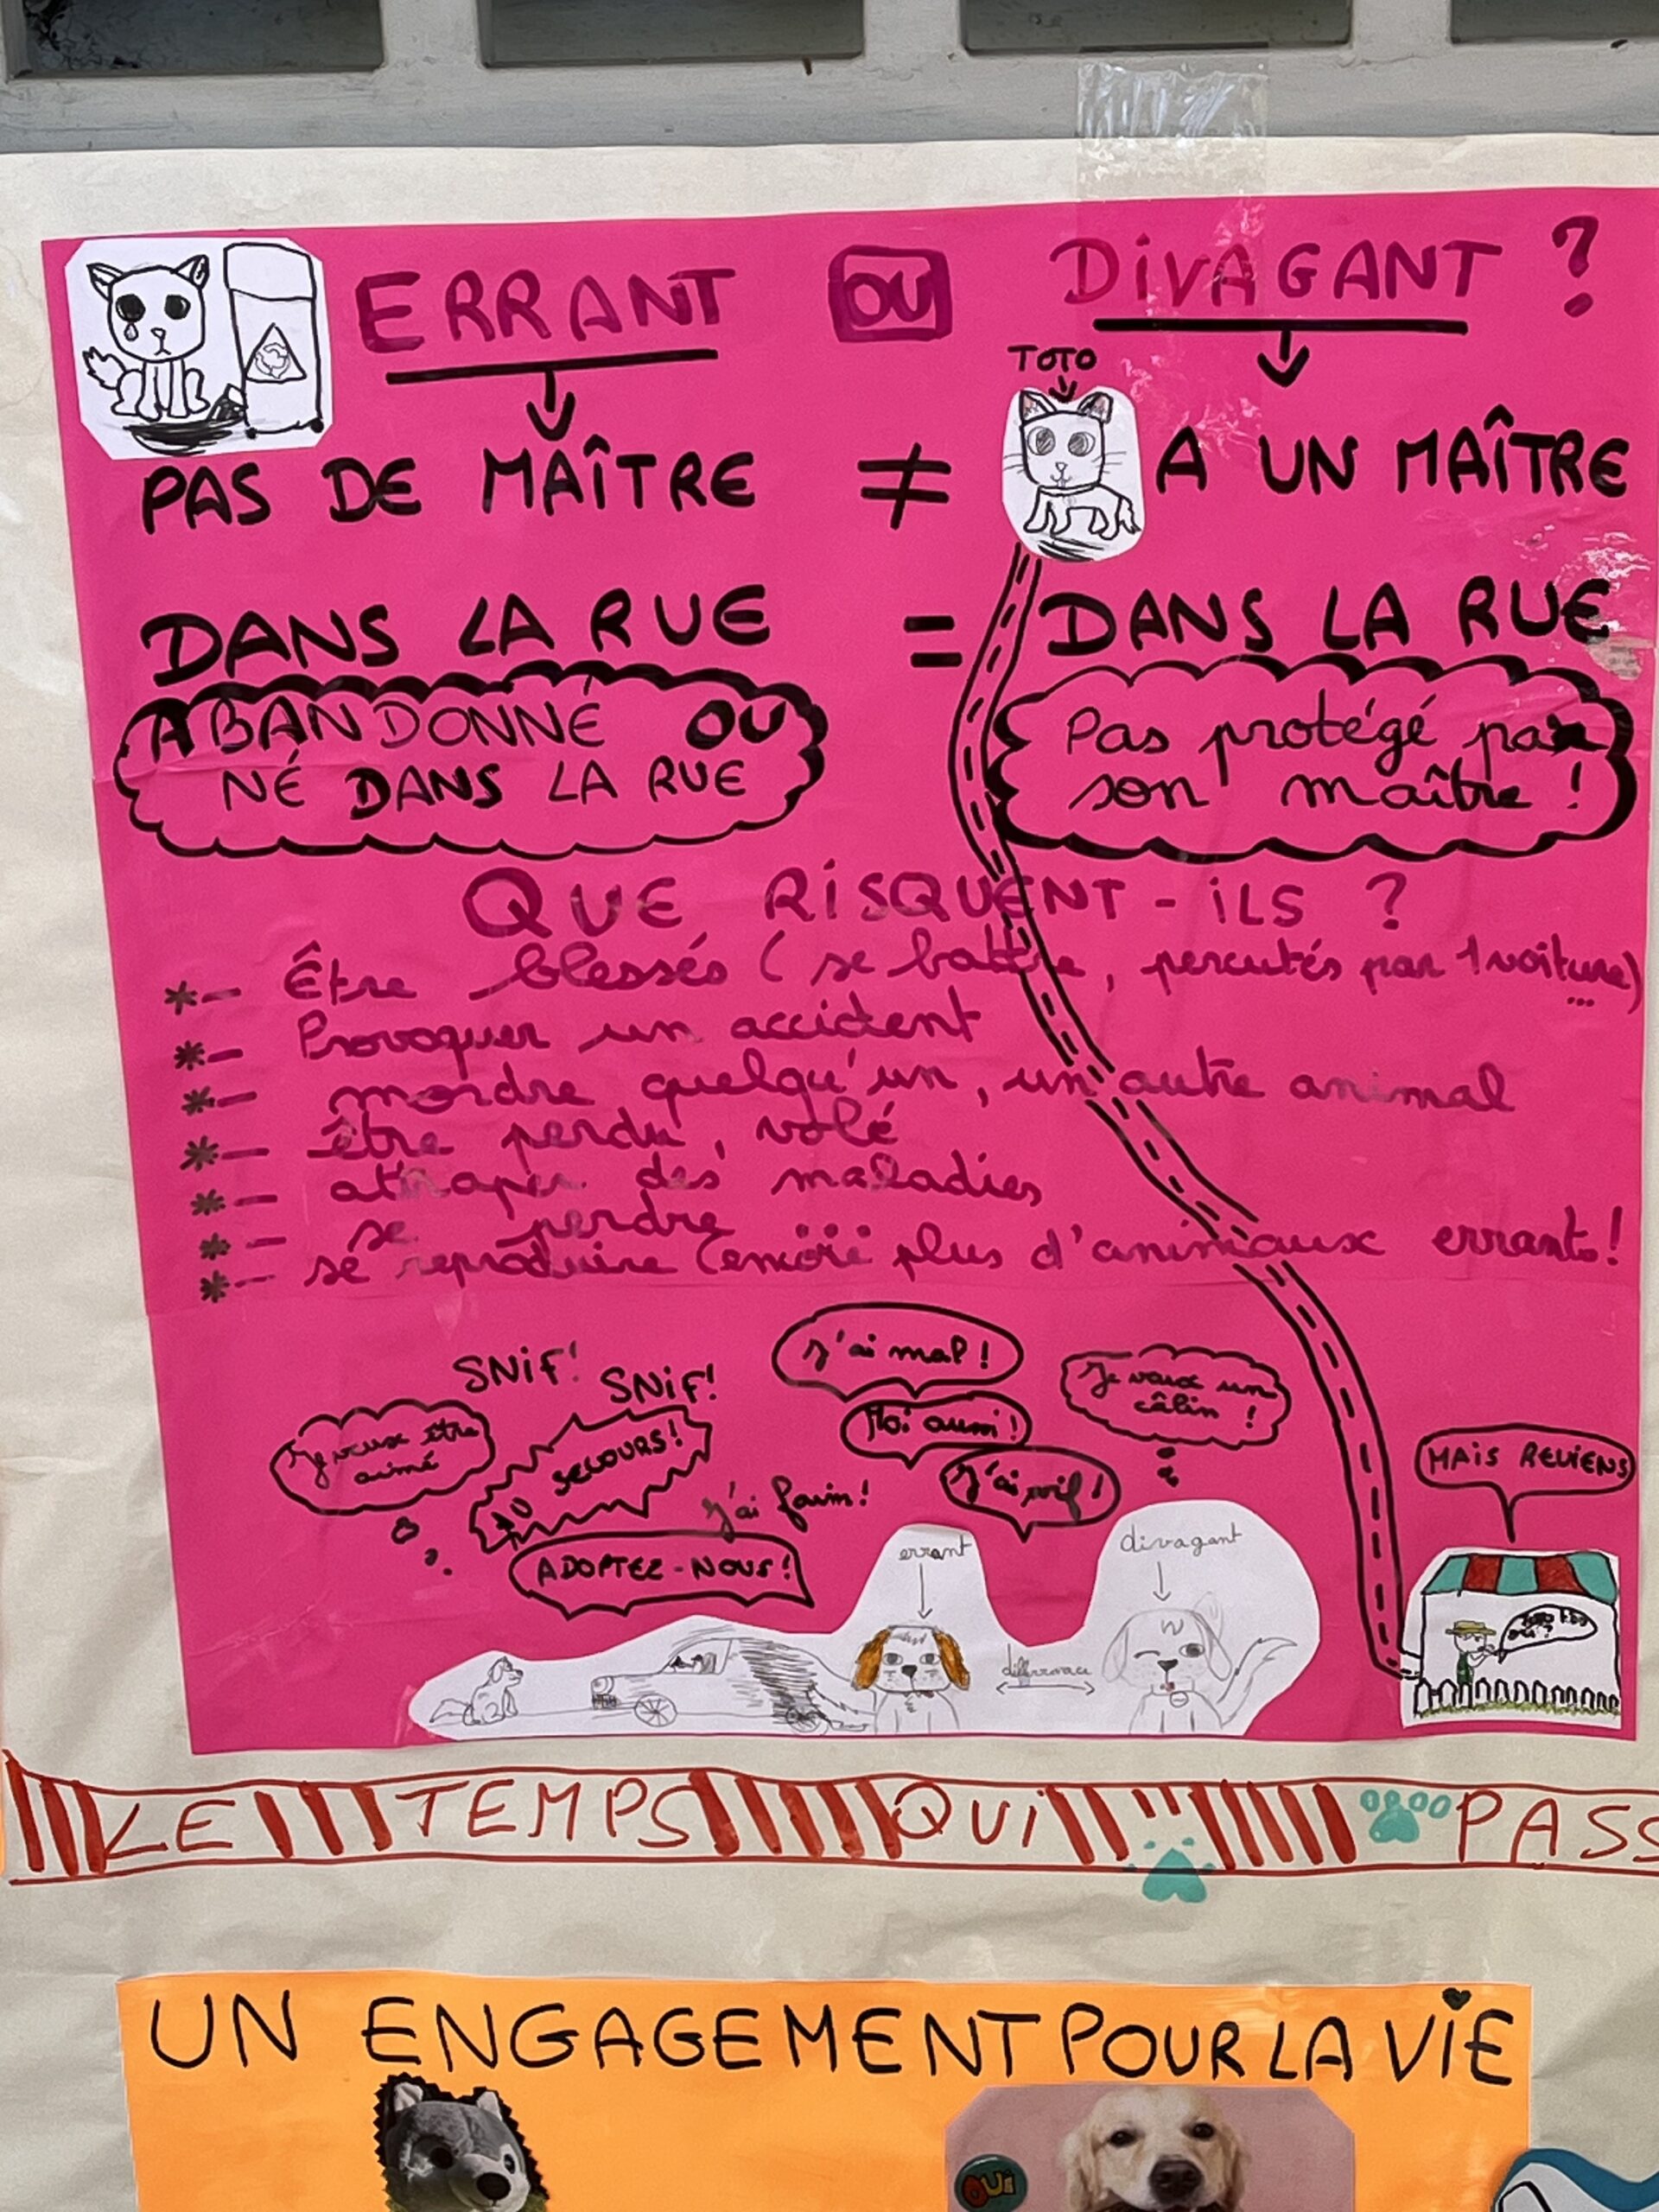 ERRANT OU DIVAGANT ?
TOTO
PAS DE MAÎTRE ≠ A UN MAÎTRE
DANS LA RUE = DANS LA RUE
ABANDONNÉ OU
NÉ DANS LA RUE
Pas protégé par
son maître !
QUE RISQUENT-ILS ?
*- Être blessés (se battre, percutés par 1 voiture)
...
*- Provoquer un accident
*- mordre quelqu'un, un autre animal
*- être perdu, volé
*- attraper des maladies
*- se perdre
*- se reproduire (encore plus d'animaux errants!
SNIF!
SNIF!
J'ai mal !
Moi aussi !
J'ai soif !
Je veux un
câlin !
Je veux être
aimé
AU SECOURS!
J'ai faim !
ADOPTEZ-NOUS!
MAIS REVIENS
errant
divagant
différence
LE TEMPS QUI PASS
UN ENGAGEMENT POUR LA VIE
OUi